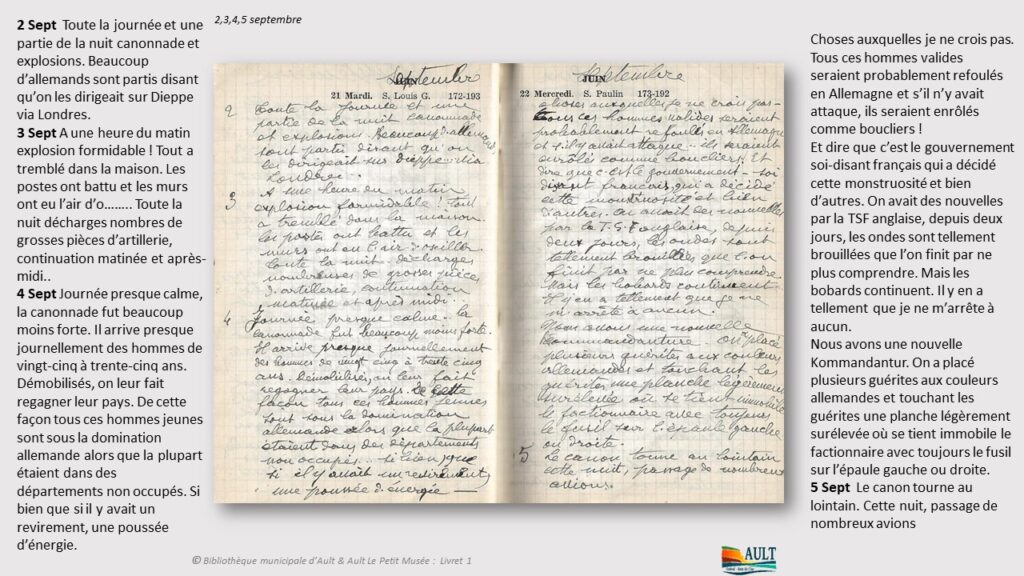 2,3,4,5 septembre
2 Sept Toute la journée et une
partie de la nuit canonnade et
explosions. Beaucoup
d’allemands sont partis disant
qu’on les dirigeait sur Dieppe
via Londres.
3 Sept A une heure du matin
explosion formidable ! Tout a
tremblé dans la maison. Les
postes ont battu et les murs
ont eu l’air d’o…….. Toute la
nuit décharges nombres de
grosses pièces d’artillerie,
continuation matinée et après-
midi..
4 Sept Journée presque calme,
la canonnade fut beaucoup
moins forte. Il arrive presque
journellement des hommes de
vingt-cinq à trente-cinq ans.
Démobilisés, on leur fait
regagner leur pays. De cette
façon tous ces hommes jeunes
sont sous la domination
allemande alors que la plupart
étaient dans des
départements non occupés. Si
bien que si il y avait un
revirement, une poussée
d’énergie.
Septembre
JUIN
21 Mardi. S. Louis G. 172-193
2 Toute la journée et une
partie de la nuit canonnade
et explosions. Beaucoup d'allemands
sont partis disant qu'on
les dirigeait sur Dieppe via
Londres.
3 A une heure du matin
explosion formidable ! Tout
a tremblé dans la maison
les postes ont battu et les
murs ont eu l'air d'osciller
Toute la nuit décharges
nombreuses de grosses pièces
d'artillerie, continuation
matinée et après midi
4 Journée presque calme. la
canonnade fut beaucoup moins forte.
Il arrive presque journellement
des hommes de vingt cinq à trente cinq
ans. Démobilisés, on leur fait
regagner leur pays. De cette
façon tous ces hommes jeunes
sont sous la domination
allemande alors que la plupart
étaient dans des départements
non occupés. si bien que
si il y avait un revirement,
une poussée d'énergie —
Septembre
JUIN
22 Mercredi. S. Paulin 173-192
choses auxquelles je ne crois pas
tous ces hommes valides seraient
probablement refoulés en Allemagne
et s'il y avait attaque ils seraient
enrôlés comme boucliers ! Et
dire que c'est le gouvernement soi
disant français qui a décidé
cette monstruosité et bien
d'autres. On avait des nouvelles
par la T.S.F anglaise, depuis
deux jours, les ondes sont
tellement brouillées que l'on
finit par ne plus comprendre.
Mais les bobards continuent
Il y en a tellement que je ne
m'arrête à aucun.
Nous avons une nouvelle
Kommandanture. On a placé
plusieurs guérites aux couleurs
allemandes et touchant les
guérites une planche légèrement
surélevée où se tient immobile
le factionnaire avec toujours
le fusil sur l'épaule gauche
ou droite.
5 Le canon tonne au lointain
cette nuit, passage de nombreux
avions.
Choses auxquelles je ne crois pas.
Tous ces hommes valides
seraient probablement refoulés
en Allemagne et s’il n’y avait
attaque, ils seraient enrôlés
comme boucliers !
Et dire que c’est le gouvernement
soi-disant français qui a décidé
cette monstruosité et bien
d’autres. On avait des nouvelles
par la TSF anglaise, depuis deux
jours, les ondes sont tellement
brouillées que l’on finit par ne
plus comprendre. Mais les
bobards continuent. Il y en a
tellement que je ne m’arrête à
aucun.
Nous avons une nouvelle
Kommandantur. On a placé
plusieurs guérites aux couleurs
allemandes et touchant les
guérites une planche légèrement
surélevée où se tient immobile le
factionnaire avec toujours le fusil
sur l’épaule gauche ou droite.
5 Sept Le canon tourne au
lointain. Cette nuit, passage de
nombreux avions
© Bibliothèque municipale d’Ault & Ault Le Petit Musée : Livret 1
AULT